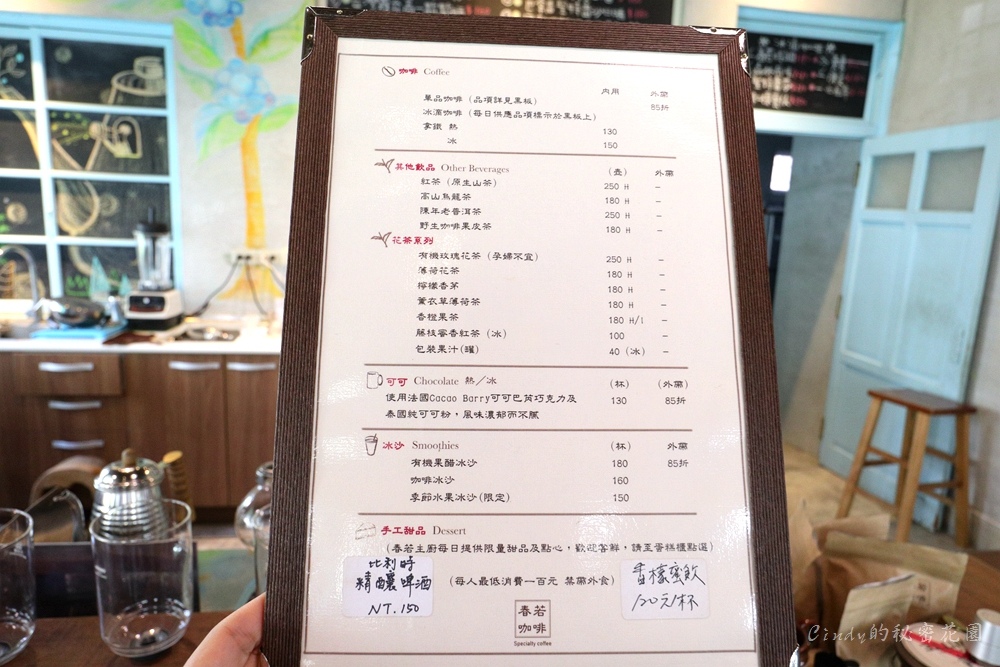 咖啡 Coffee
內用 外帶
單品咖啡（品項詳見黑板） 85折
冰滴咖啡（每日供應品項標示於黑板上）
拿鐵 熱 130
冰 150
其他飲品 Other Beverages （壺） 外帶
紅茶（原生山茶） 250 H –
高山烏龍茶 180 H –
陳年老普洱茶 250 H –
野生咖啡果皮茶 180 H –
花茶系列
有機玫瑰花茶（孕婦不宜） 250 H –
薄荷花茶 180 H –
檸檬香茅 180 H –
薰衣草薄荷茶 180 H –
香橙果茶 180 H/I –
藤枝蜜香紅茶（冰） 100 –
包裝果汁(罐) 40（冰） –
可可 Chocolate 熱／冰 （杯） （外帶）
使用法國Cacao Barry可可巴芮巧克力及 130 85折
泰國純可可粉，風味濃郁而不膩
冰沙 Smoothies （杯） 外帶
有機果醋冰沙 180 85折
咖啡冰沙 160
季節水果冰沙(限定) 150
手工甜品 Dessert
（春若主廚每日提供限量甜品及點心，歡迎客鮮，請至蛋糕櫃點選）
比利時
精釀啤酒
NT.150
（每人最低消費一百元 禁帶外食）
青檬蜜飲
120元/杯
春若
咖啡
Specialty coffee
Cindy的秘密花園